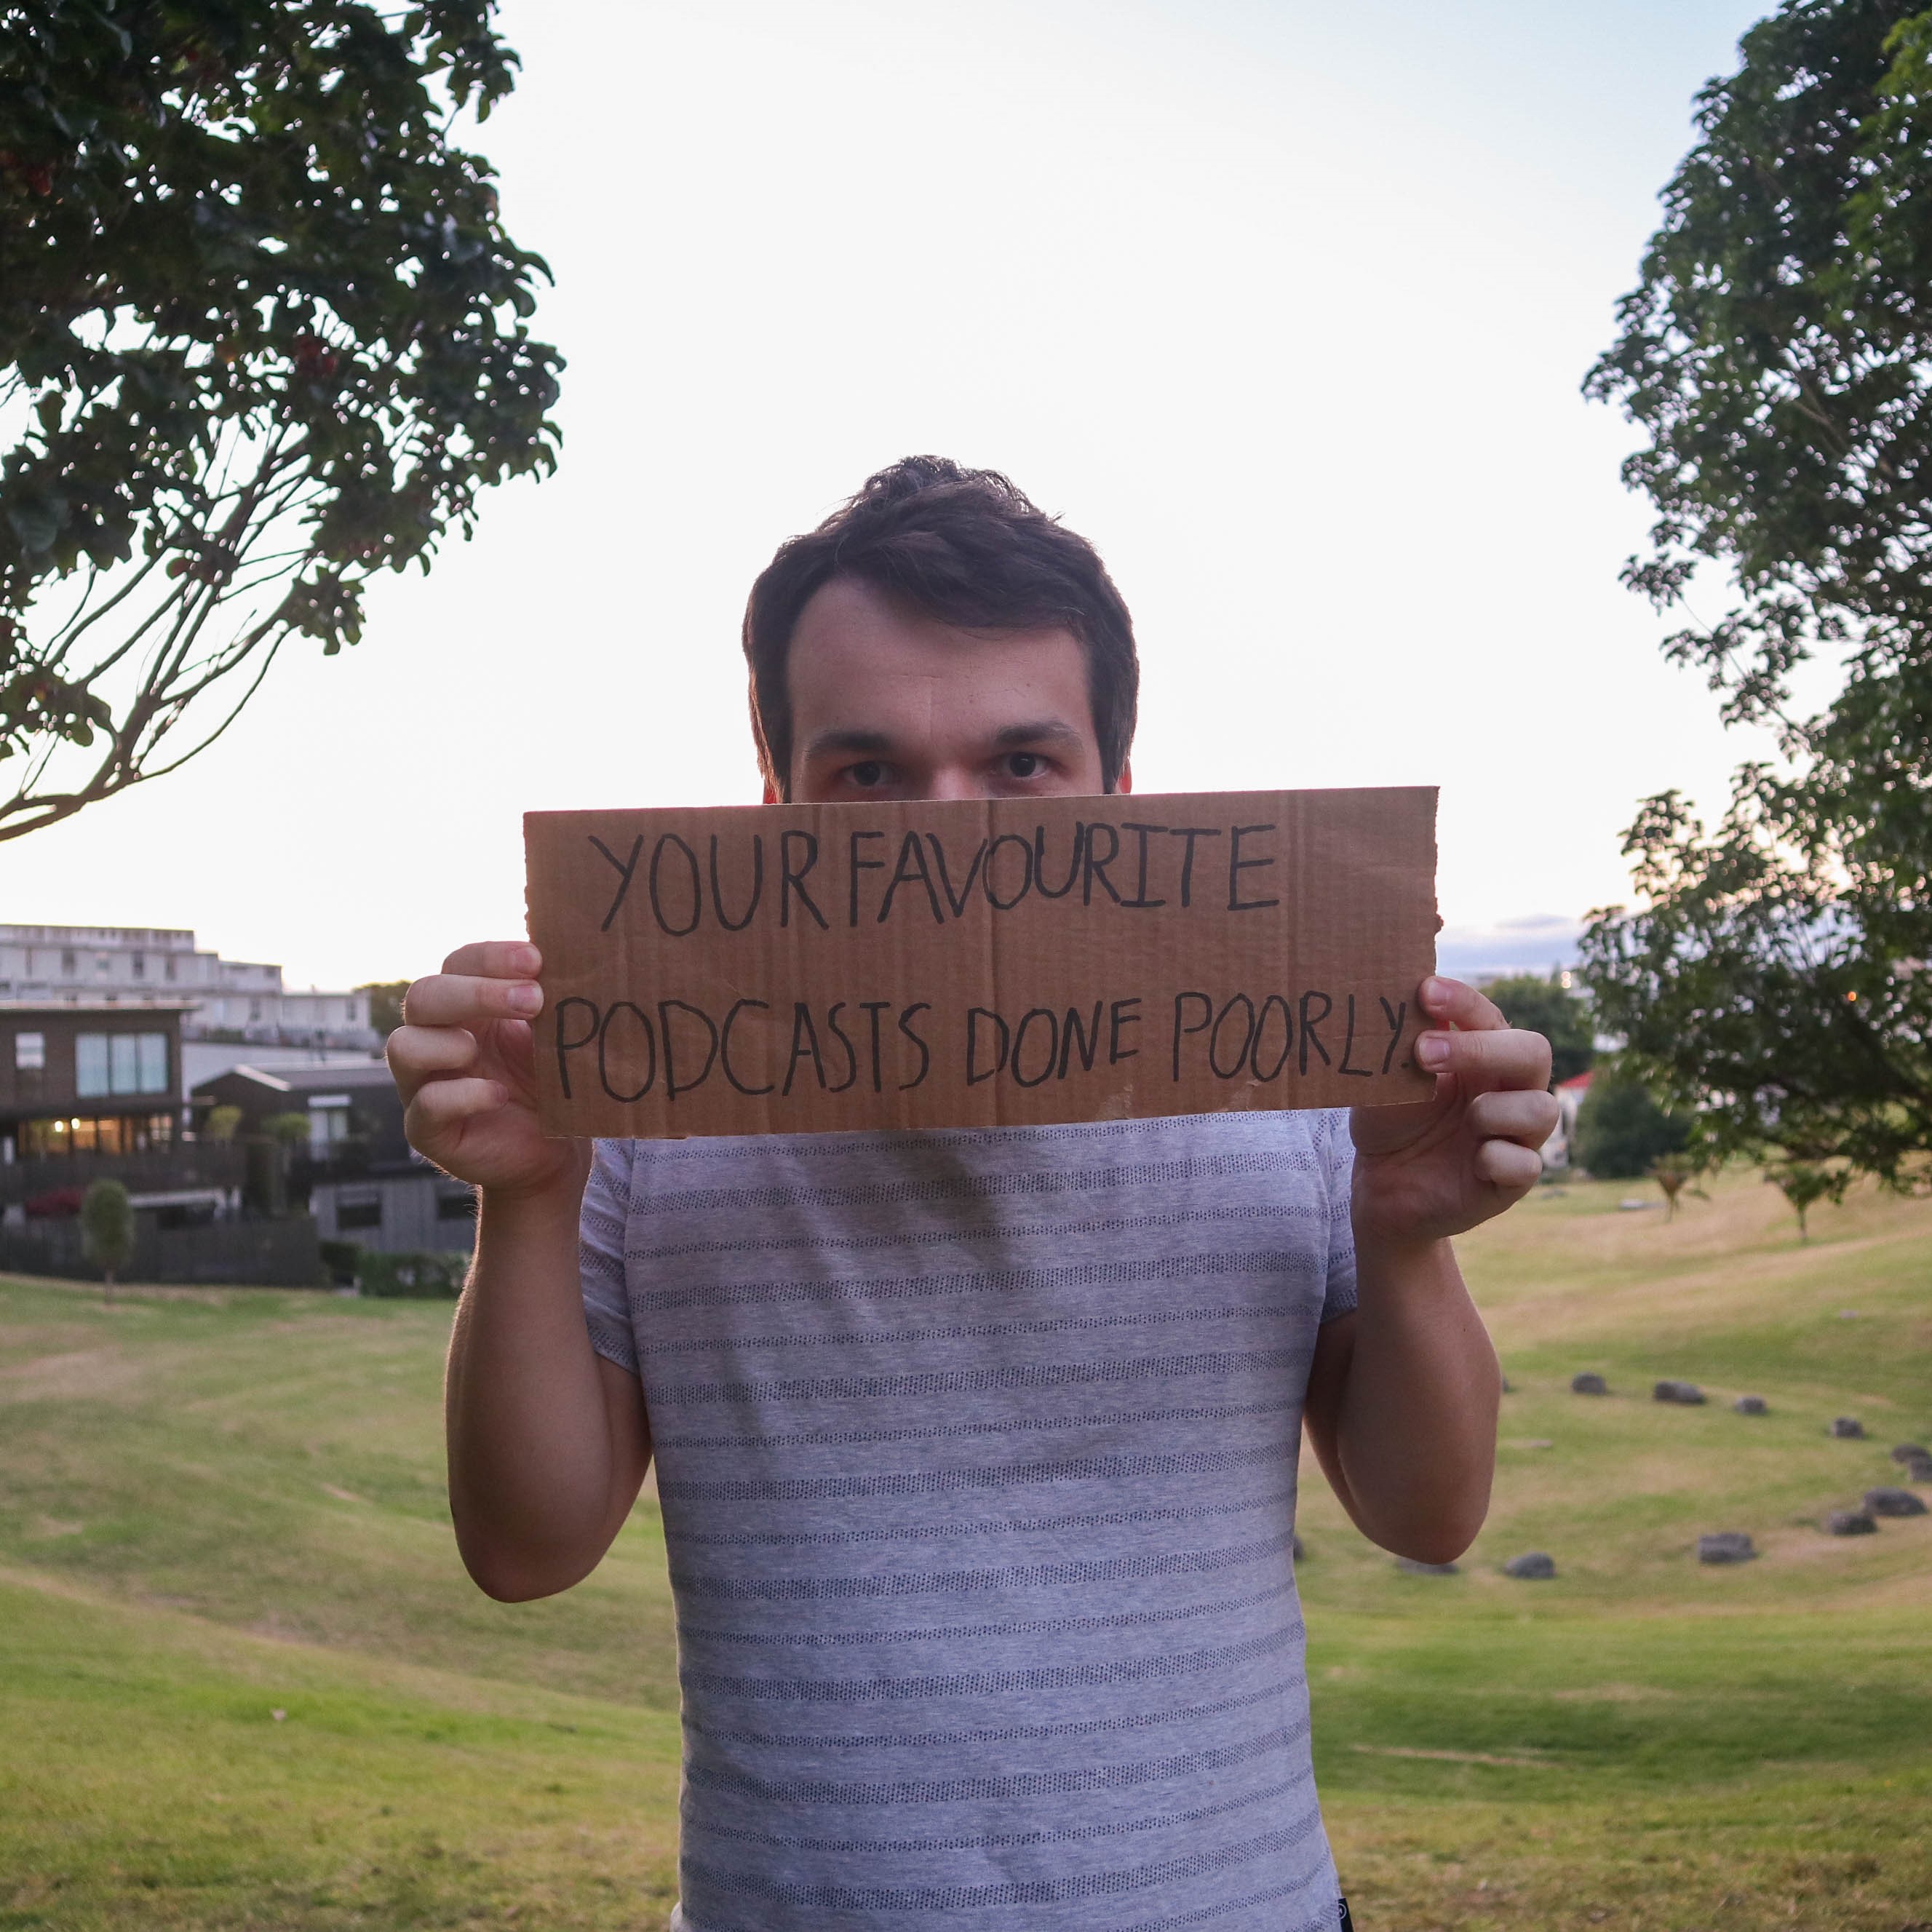 YOUR FAVOURITE
PODCASTS DONE POORLY.